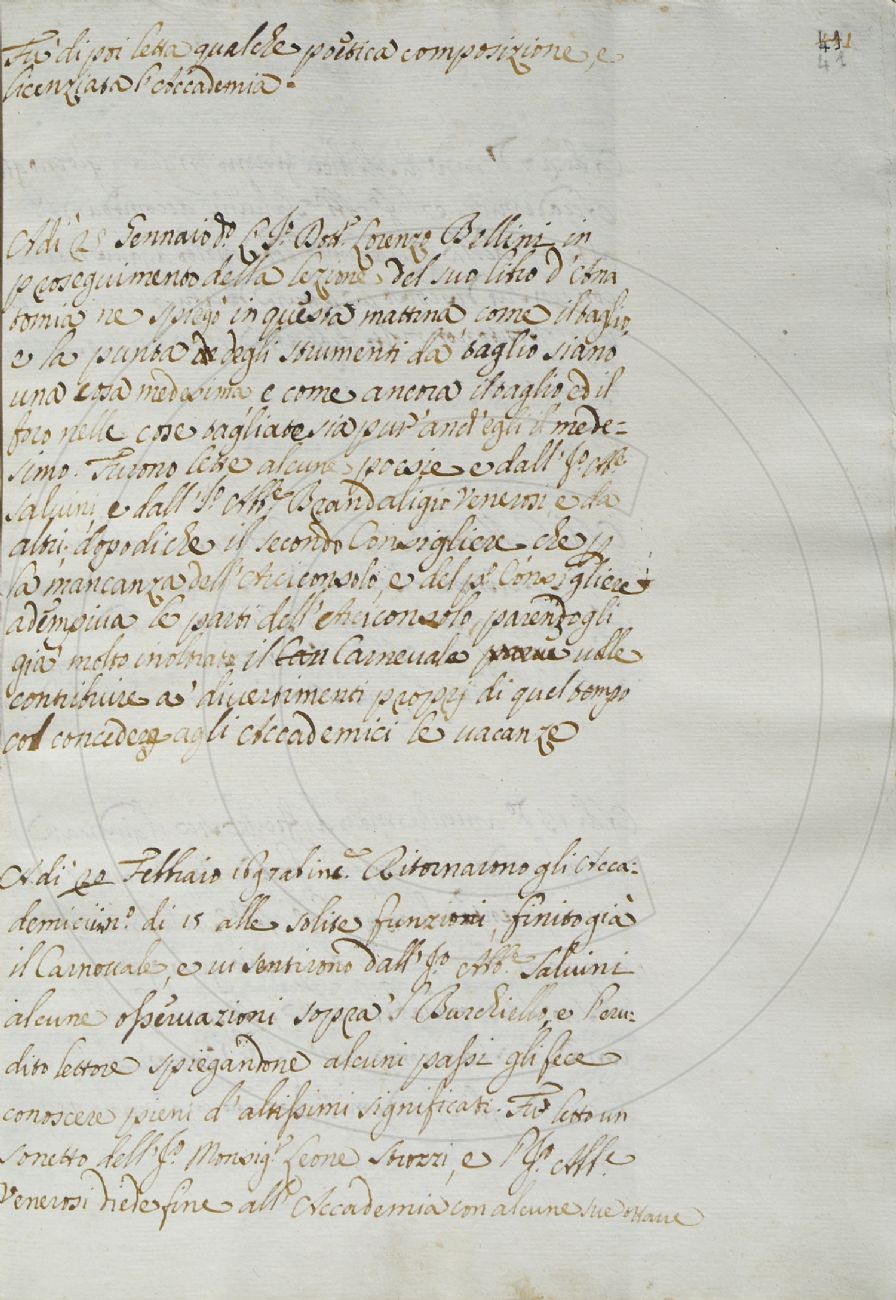 41
41
Fù di poi letta qualche poètica composizione, e
licenziata l'Accademia.
Adì 25 Gennaio do. Il Sr. Dottr. Lorenzo Bellini in
proseguimento della lezione del suo libro d'Ana
tomia ne spiegò in questa mattina come il taglio,
e la punta degli strumenti dà taglio siano
una cosa medesima e come ancora il taglio ed il
foro nelle cose tagliate sia pur'anch'egli il mede=
simo. Furono lette alcune poesie e dall' Sr. Abe.
Salvini, e dall' Sr. Abe. Brandaligio Venerosi e da
altri; dopodiche il secondo Consigliere che p
la mancanza dell'Arciconsolo, e del po. Consigliere
adempiva le parti dell'Arciconsolo, parendogli
già molto inoltrato il Carnevale volle
contribuire a' divertimenti proprj di quel tempo
col concedere agli Accademici le vacanze
Adì 22 Febbraio Ritornarono gli Acca=
demici in no. di 15 alle solite funzioni, finito già
il Carnovale, e vi sentirono dall' Sr. Abe. Salvini
alcune osservazioni sopra 'l Burchiello, e l'eru=
dito lettore spiegandone alcuni passi gli fece
conoscere pieni d'altissimi significati. Fù letto un
sonetto dell' Sr. Monsigr. Leone Strozzi, e l' Sr. Abe.
Venerosi diede fine all' Accademia con alcune sue ottave